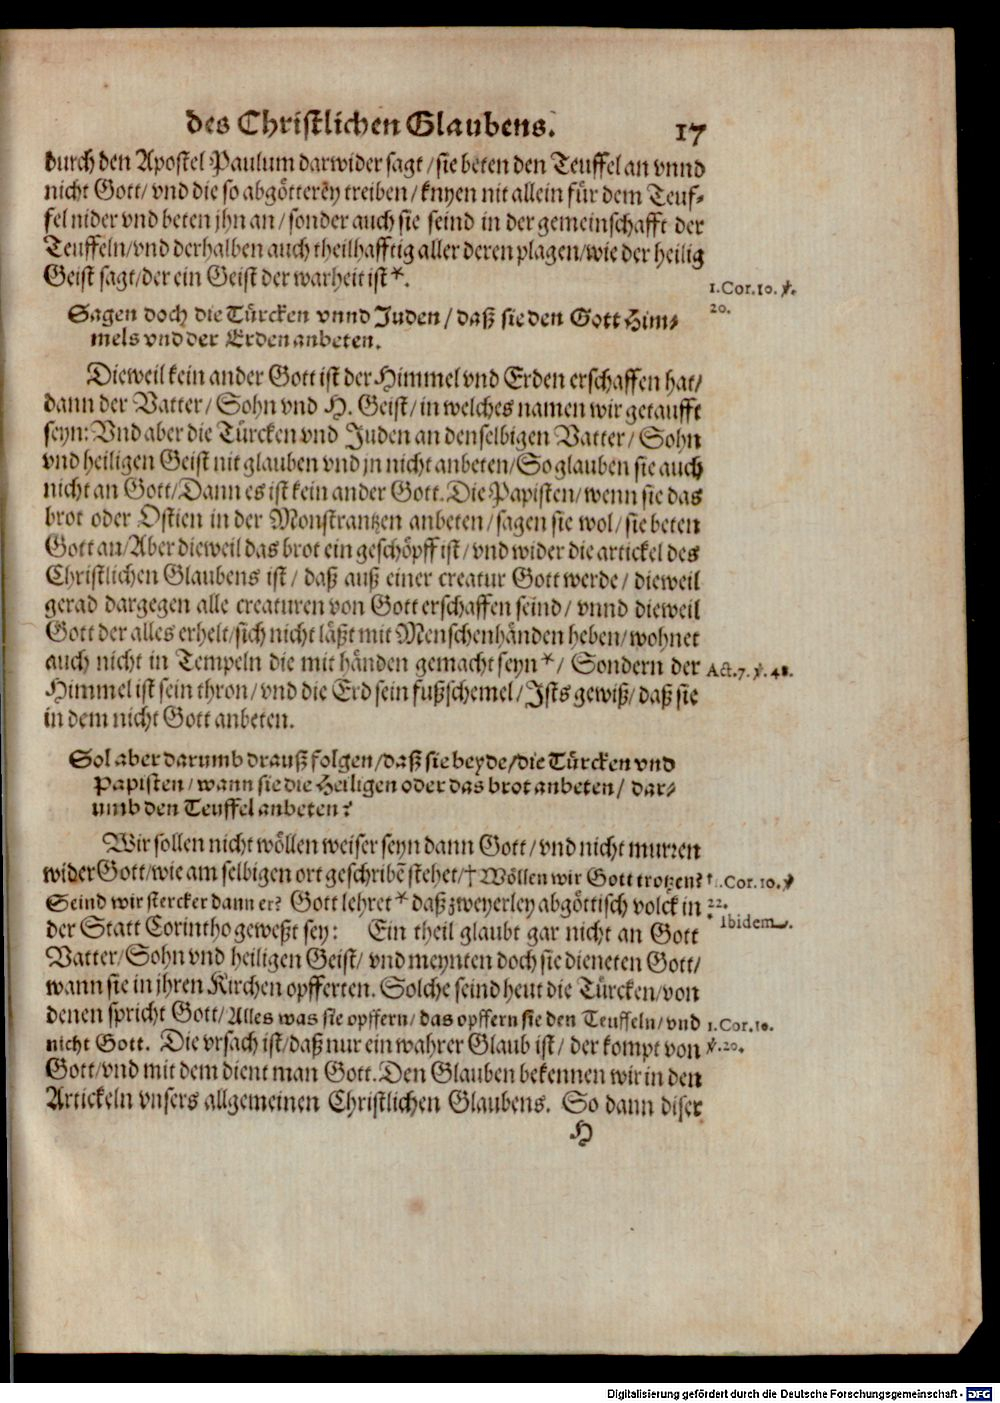 des Christlichen Glaubens. 17
durch den Apostel Paulum darwider sagt/ sie beten den Teuffel an vnnd
nicht Gott/ vnd die so abgötterey treiben/ knyen nit allein für dem Teuf-
fel nider vnd beten jhn an/ sonder auch sie seind in der gemeinschafft der
Teuffeln/ vnd derhalben auch theilhafftig aller deren plagen/ wie der heilig
Geist sagt/ der ein Geist der warheit ist*.
1. Cor. 10. ℣.
20.
Sagen doch die Türcken vnnd Juden/ daß sie den Gott Him-
mels vnd der Erden anbeten.
Dieweil kein ander Gott ist der Himmel vnd Erden erschaffen hat/
dann der Vatter/ Sohn vnd H. Geist/ in welches namen wir getaufft
seyn: Vnd aber die Türcken vnd Juden an denselbigen Vatter/ Sohn
vnd heiligen Geist nit glauben vnd jn nicht anbeten/ So glauben sie auch
nicht an Gott/ Dann es ist kein ander Gott. Die Papisten/ wenn sie das
brot oder Ostien in der Monstrantzen anbeten/ sagen sie wol/ sie beten
Gott an/ Aber dieweil das brot ein geschöpff ist/ vnd wider die artickel des
Christlichen Glaubens ist/ daß auß einer creatur Gott werde/ dieweil
gerad dargegen alle creaturen von Gott erschaffen seind/ vnnd dieweil
Gott der alles erhelt/ sich nicht läßt mit Menschenhänden heben/ wohnet
auch nicht in Tempeln die mit händen gemacht seyn*/ Sondern der Act. 7. ℣. 48.
Himmel ist sein thron/ vnd die Erd sein fußschemel/ Jsts gewiß/ daß sie
in dem nicht Gott anbeten.
Sol aber darumb drauß folgen/ daß sie beyde/ die Türcken vnd
Papisten/ wann sie die Heiligen oder das brot anbeten/ dar-
umb den Teuffel anbeten?
Wir sollen nicht wöllen weiser seyn dann Gott/ vnd nicht murren
wider Gott/ wie am selbigen ort geschribē stehet/ † Wöllen wir Gott trotzen? †1. Cor. 10. ℣
Seind wir stercker dann er? Gott lehret* daß zweyerley abgöttisch volck in 22.
der Statt Corintho geweßt sey: Ein theil glaubt gar nicht an Gott * Ibidem.
Vatter/ Sohn vnd heiligen Geist/ vnd meynten doch sie dieneten Gott/
wann sie in jhren Kirchen opfferten. Solche seind heut die Türcken/ von
denen spricht Gott/ Alles was sie opffern/ das opffern sie den Teuffeln/ vnd 1. Cor. 10.
nicht Gott. Die vrsach ist/ daß nur ein wahrer Glaub ist/ der kompt von ℣. 20.
Gott/ vnd mit dem dient man Gott. Den Glauben bekennen wir in den
Artickeln vnsers allgemeinen Christlichen Glaubens. So dann diser
H
Digitalisierung gefördert durch die Deutsche Forschungsgemeinschaft - DFG